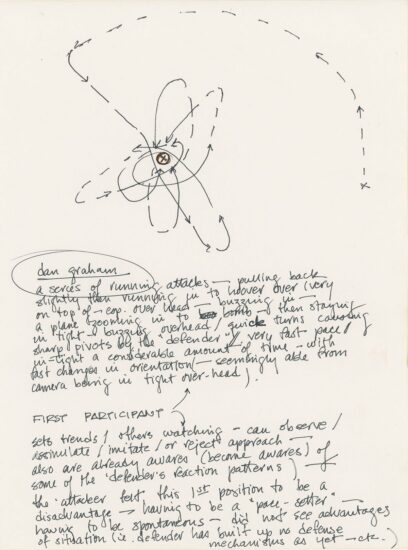 dan graham
a series of running attacks — pulling back
slightly then running in to hoover over (very
on top of — esp. over head — buzzing in —
a plane zooming in to bomb — then staying
in tight — buzzing overhead / quick turns causing
sharp pivots by the "defender" / very fast pace /
in-tight a considerable amount of time — with
fast changes in orientation (— seemingly able from
camera being in tight over-head).
FIRST PARTICIPANT
sets trends / others watching — can observe /
assimilate / imitate / or reject approach —
also are already awares (become awares) of
some of the 'defender's reaction patterns) —
the "attacker felt this 1st position to be a
disadvantage → having to be a "pace-setter"
having to be spontaneous — did not see advantages
of situation (i.e. defender has built up no defense
mechanisms as yet — etc.)